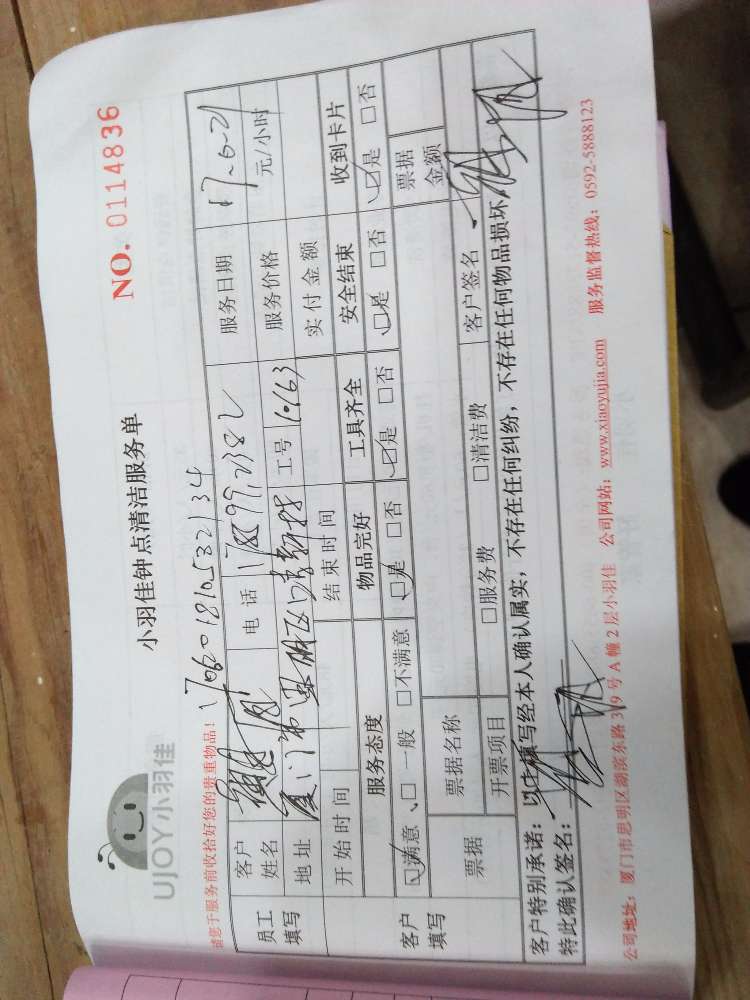 UJOY小羽佳
小羽佳钟点清洁服务单
NO. 0114836
请您于服务前收拾好您的贵重物品！
1706201810532134
员工填写
客户姓名
电话
服务日期 17-6-21
地址 厦门市思明区
工号
服务价格 元/小时
开始时间
结束时间
实付金额
客户填写
服务态度 物品完好 工具齐全 安全结束 收到卡片
☑满意 □一般 □不满意 ☑是 □否 ☑是 □否 ☑是 □否 ☑是 □否
票据 票据名称 票据金额
开票项目 □服务费 □清洁费 客户签名
客户特别承诺：以上填写经本人确认属实，不存在任何纠纷，不存在任何物品损坏，
特此确认签名：
公司地址：厦门市思明区湖滨东路319号A幢2层小羽佳 公司网站：www.xiaoyujia.com 服务监督热线：0592-5888123